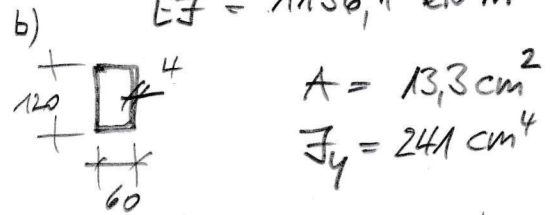 EJ =
b)
4
120
60
A = 13,3 cm²
Jy = 241 cm⁴